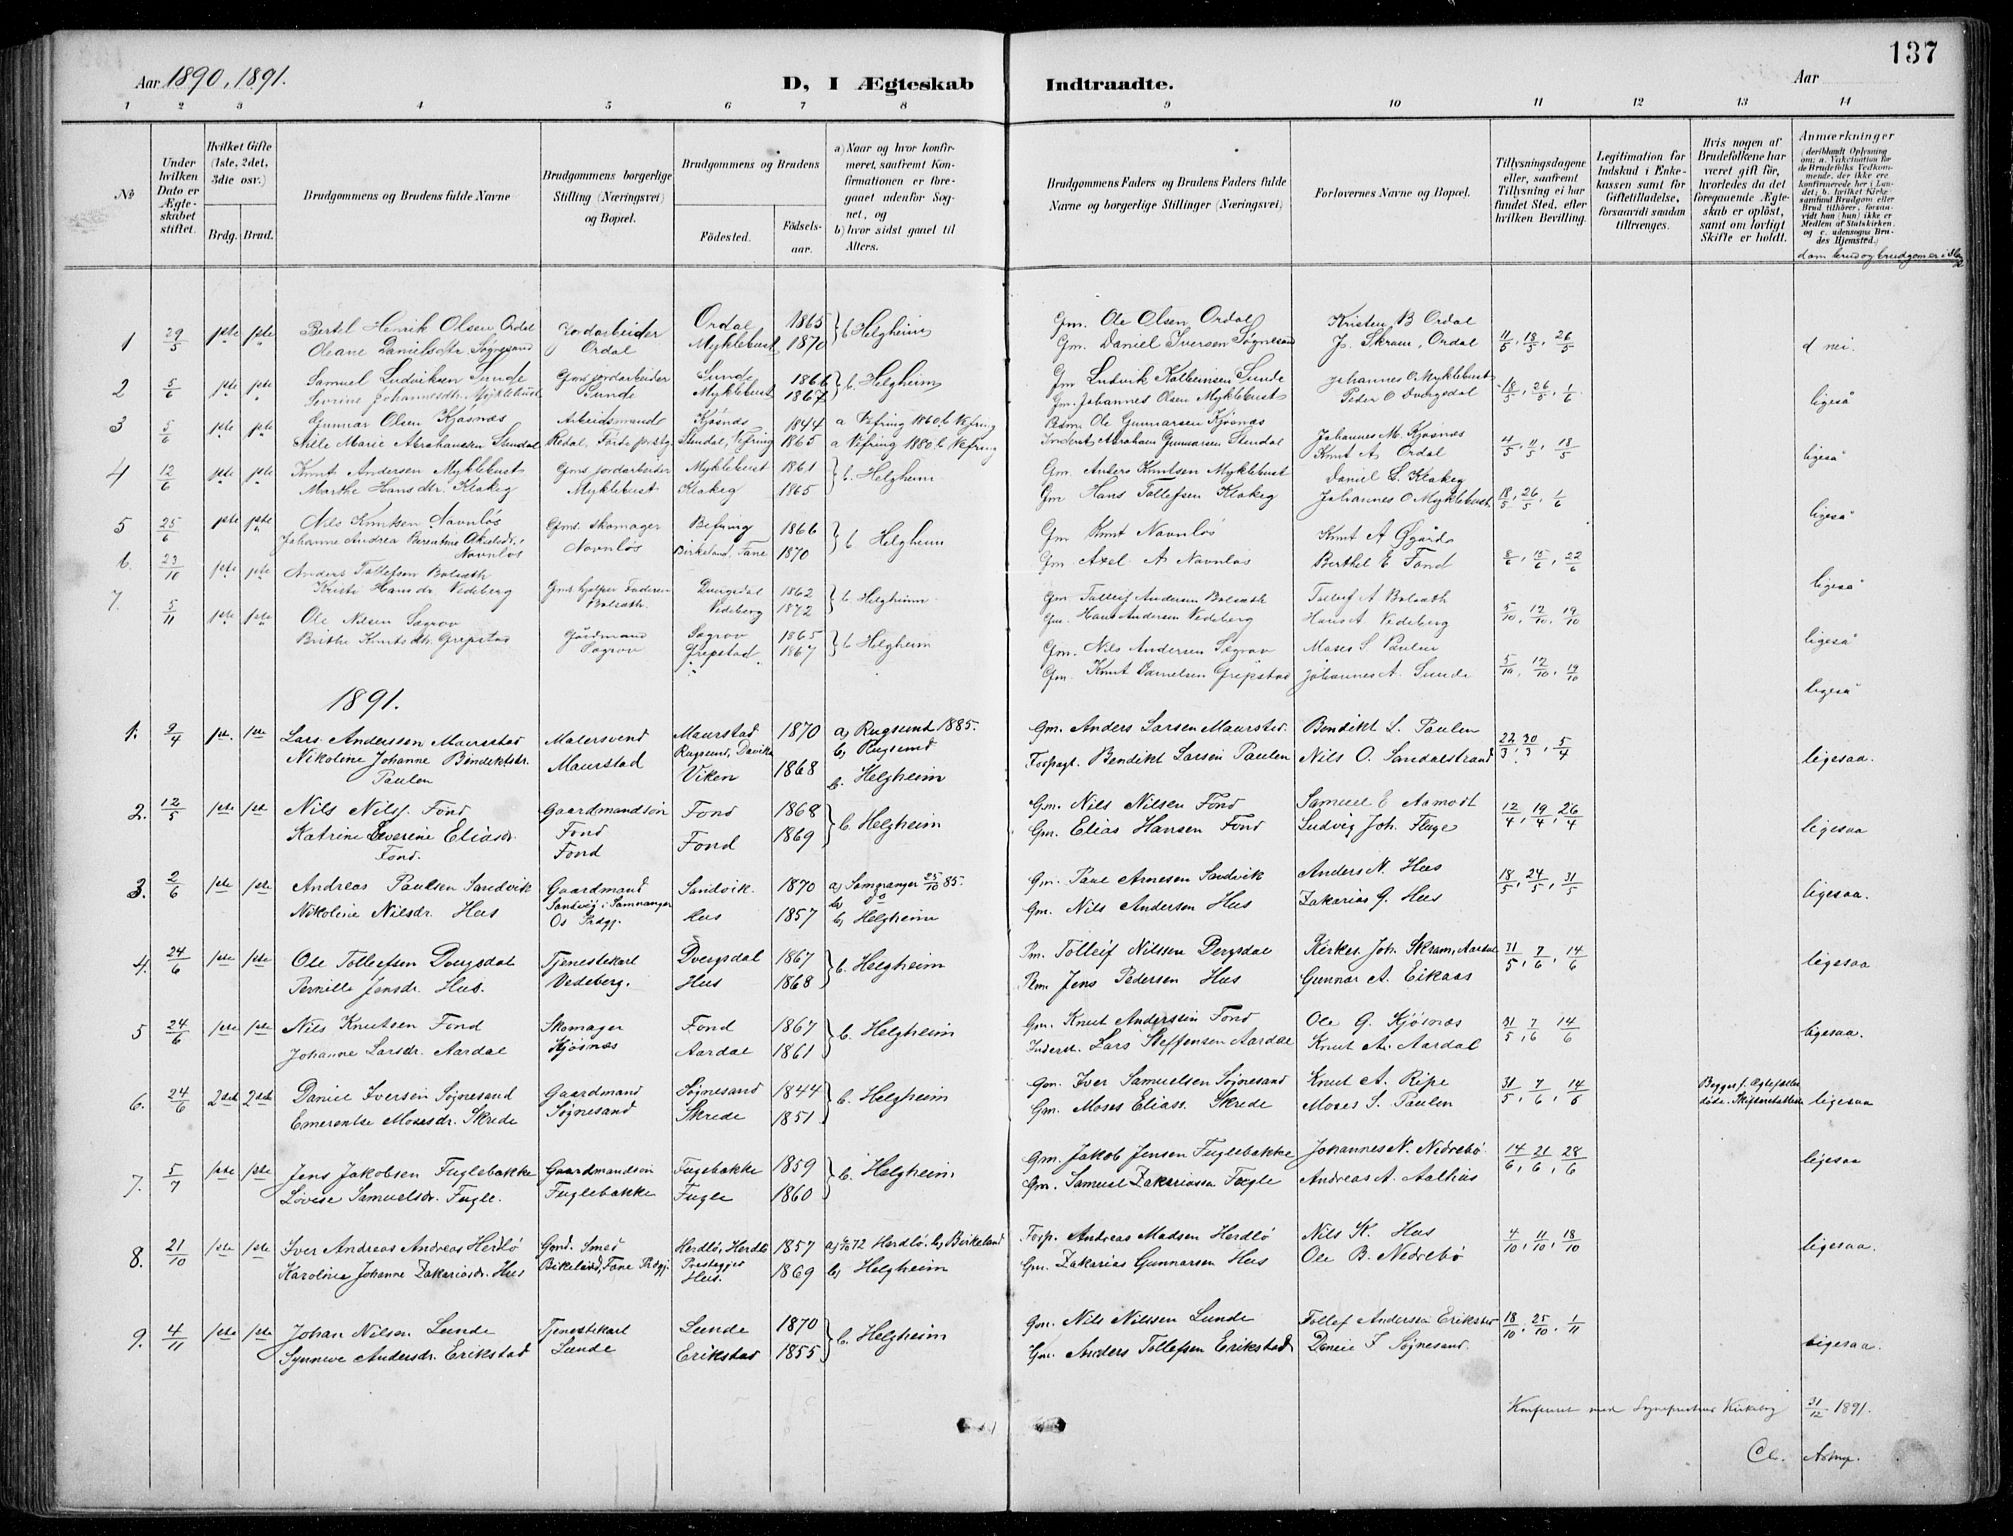 137
Aar 1890, 1891.
D, I Ægteskab Indtraadte.
Aar
1 2 3 4 5 6 7 8 9 10 11 12 13 14
No
Under hvilken Dato er Ægteskabet stiftet.
Hvilket Gifte (1ste, 2det, 3die osv.)
Brdg. Brud.
Brudgommens og Brudens fulde Navne
Brudgommens borgerlige Stilling (Næringsvei) og Bopæl.
Brudgommens og Brudens
Fødested.
Fødselsaar.
a) Naar og hvor konfirmeret, saafremt Konfirmationen er foregaaet udenfor Sognet, og
b) hvor sidst gaaet til Alters.
Brudgommens Faders og Brudens Faders fulde Navne og borgerlige Stillinger (Næringsvei)
Forlovernes Navne og Bopæl.
Tillysningsdagene eller, saafremt Tillysning ei har fundet Sted, efter hvilken Bevilling.
Legitimation for Indskud i Enkekassen samt for Giftetilladelse, forsaavidt saadan tiltrænges.
Hvis nogen af Brudefolkene har været gift før, hvorledes da det foregaaende Ægteskab er opløst, samt om lovligt Skifte er holdt.
Anmærkninger (deriblandt Oplysning om: a. Vakcination for de Brudefolks Vedkommende, der ikke ere konfirmerede her i Landet; b. hvilket Kirkesamfund Brudgom eller Brud tilhører, forsaavidt han (hun) ikke er Medlem af Statskirken, og c. udensogns Brudes Hjemsted.)
d om brud og brudgom er i
1 29/5 1ste 1ste Bertel Henrik Olsen Ordal Jordarbeider Ordal 1865 b. Helgheim Gm. Ole Olsen Ordal Kristen B Ordal 11/5, 18/5, 26/5 d nei.
Oleane Danielsdtr Søgnesand Ordal Myklebust 1870 Gm. Daniel Iversen Søgnesand J. Skram, Ordal
2 5/6 1ste 1ste Samuel Ludviksen Sunde Gms jordarbeider Sunde 1866 b. Helgheim Gm Ludvik Kolbeinsen Sunde Johannes O Myklebust 18/5, 26/5, 1/6 ligeså
Severine Johannesdtr. Myklebust Sunde Myklebust 1867 Gm. Johannes Olsen Myklebust Peder O Dvergsdal
3 5/6 1ste 1ste Gunnar Olsen Kjøsnæs Arbeidsmand Kjøsnæs 1844 a Vefring 1860 b. Vefring Ole Gunnarsen Kjøsnæs Johannes M. Kjøsnæs 4/5, 11/5, 18/5 ligeså
Marie Abrahamsen Stendal Redal, Førde Stendal, Vefring 1865 a Vefring 1880 b. Vefring Inderst Abraham Gunnarsen Stendal Knut A. Ordal
4 12/6 1ste 1ste Knut Andersen Myklebust Gms jordarbeider Myklebust 1861 b. Helgheim Gm Anders Knutsen Myklebust Daniel L. Klakeg 18/5, 26/5, 1/6 ligeså
Marthe Hansdtr. Klakeg Myklebust Klakeg 1865 Gm Hans Tollefsen Klakeg Johannes O Myklebust
5 25/6 1ste 1ste Nils Knutsen Navnløs Gms. Skomager Vefring 1866 b. Helgheim Gm Knut Navnløs Knut A Øgård 8/6, 15/6, 22/6 ligeså
Johanne Andrea Bereatine Akseldtr. Navnløs Navnløs Birkeland, Fane 1870 Gm Axel A. Navnløs Berthel E Fond
6. 23/10 1ste 1ste Anders Tollefsen Bolsæth Gms hjelper Faderen Dvergsdal 1862 b. Helgheim Gm Tolleif Andersen Bolsæth Tolleif A Bolsæth 5/10, 12/10, 19/10 ligeså
Kristi Hansdr. Vedeberg Bolsæth. Vedeberg 1872 Gm. Hans Andersen Vedeberg Hans A Vedeberg
7. 5/11 1ste 1ste Ole Nilsen Søgrov Gårdmand Søgrov 1865 b. Helgheim Gm. Nils Andersen Søgrov Moses S. Paulen 5/10, 12/10, 19/10 ligeså
Brithe Knutsdtr. Grepstad Søgrov Grepstad 1867 Gm. Knut Danielsen Grepstad Johannes A. Sunde
1891.
1. 9/4 1ste 1ste Lars Anderssen Maurstad Malersvend Maurstad 1870 a) Rugsund 1885. Gm. Anders Larsen Maurstad Bendikt L. Paulen 22/3, 30/3, 5/4 ligesaa.
Nikoline Johanne Bendektsdr. Paulen Maurstad Rugsund, Davik Viken 1868 b) Rugsund b. Helgheim Forpagt. Bendikt Larsen Paulen Nils O. Sandalstrand
2. 12/5 1ste 1ste Nils Nilss. Fond Gaardmandsøn Fond 1868 b. Helgheim Gm. Nils Nilsen Fond Samuel E Aamodt 12/4, 19/4, 26/4 ligesaa
Katrine Severine Eliasdr. Fond. Fond Fond Fond 1869 Gm. Elias Hansen Fond Ludvig Joh. Flage
3. 2/6 1ste 1ste Andreas Paulsen Sandvik Gaardmand Sandvik. 1870 a) Samnanger 25/10 85. Gm. Paul Arnesen Sandvik Anders N. Hus 18/5, 24/5, 31/5 ligesaa.
Nikoline Nilsdr. Hus Sandvig i Samnanger Os Prdgj. Hus 1857 b) do b) Helgheim Gm. Nils Andersen Hus Zakarias G. Hus
4. 24/6 1ste 1ste Ole Tollefsen Dvergsdal Tjenestekarl Dvergsdal 1867 b. Helgheim Pm. Tolleif Nilssen Dergsdal Kirkes. Joh. Skram, Aardal 31/5, 7/6, 14/6 ligesaa
Pernille Jensdr. Hus. Vedeberg. Hus 1868 Pm. Jens Pedersen Hus Gunnar A. Eikaas
5 24/6 1ste 1ste Nils Knutsen Fond Skomager Fond 1867 b. Helgheim Gm. Knut Andersen Fond Ole G. Kjøsnæs 31/5, 7/6, 14/6 ligesaa.
Johanne Larsdr. Aardal Kjøsnæs Aardal 1861 Inderst. Lars Steffensen Aardal Knut A. Aardal
6. 24/6 2det 2det Daniel Iversen Søgnesand Gaardmand Søgnesand 1844 b. Helgheim Gm. Iver Samuelsen Søgnesand Knut A. Ripe 31/5, 7/6, 14/6 Begges f. Ægtefæller døde. Skifteretattest ligesaa
Emerentse Mosesdr. Skrede Søgnesand Skrede 1851 Gm. Moses Eliass. Skrede Moses S. Paulen
7. 5/7 1ste 1ste Jens Jakobsen Fuglebakke Gaardmandsøn Fuglebakke 1859 b. Helgheim Gm. Jakob Jensen Fuglebakke Johannes N. Nedrebø 14/6, 21/6, 28/6 ligesaa
Lovise Samuelsdr. Fugle. Fuglebakke Fugle 1860 Gm. Samuel Zakariassen Fugle Andreas A. Aalhus
8. 21/10 1ste 1ste Iver Andreas Andreas Herdlø Gmd. Smed Herdlø, Herdlø 1857 a) 6/10 72 Herdlø. b) Birkeland Forp. Andreas Madsen Herdlø Nils K. Hus 4/10, 11/10, 18/10 ligesaa.
Karoline Johanne Zakariasdr. Hus Birkeland, Fane Prdgj. Prestegjeld Hus. 1869 b) Helgheim Gm. Zakarias Gunnarsen Hus Ole B. Nedrebø
9. 4/11 1ste 1ste Johan Nilsen Lunde Tjenestekarl Lunde 1870 b. Helgheim Gm. Nils Nilssen Lunde Tollef Andersen Erikstad 18/10, 25/10, 1/11 ligesaa.
Synneve Andersdr. Erikstad Lunde Erikstad 1855 Gm. Anders Tollefsen Erikstad Daniel I Søgnesand.
Konfereret med 31/12 1891.